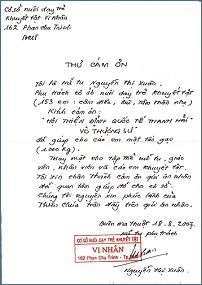 Cơ sở nuôi dạy trẻ
khuyết tật Vi Nhân
162 Phan Chu Trinh
THƯ CẢM ƠN
Tôi là nữ tu Nguyễn Thị Xuân,
Phụ trách cơ sở nuôi dạy trẻ khuyết tật
(153 em: câm điếc, mù,
Kính cảm ơn:
"HỘI THIỀN ĐỊNH QUỐC TẾ THANH HẢI
VÔ THƯỢNG SƯ"
đã giúp cho các em một tấn gạo
(1.000 kg).
Thay mặt cho tập thể giáo
viên, nhân viên và các em khuyết tật.
Tôi xin chân thành cảm ơn ân nhân
đã quan tâm giúp đỡ cho cơ sở.
Chúng tôi nguyện xin phúc lành của
Thiên Chúa tràn đầy trên ân nhân.
Buôn Ma Thuột 18.8.2007
Nữ tu phụ trách
CƠ SỞ NUÔI DẠY TRẺ KHUYẾT TẬT
VI NHÂN
162 Phan Chu Trinh - Tp.
Nguyễn Thị Xuân